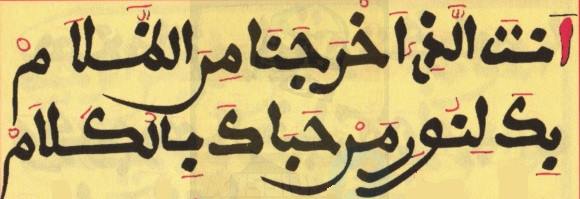 انت الَّذِي اَخْرَجَنَا مِنَ الظَّلَامْ
بِكَ لِنُورِ مَنْ حَبَاكَ بِالْكَلَامْ